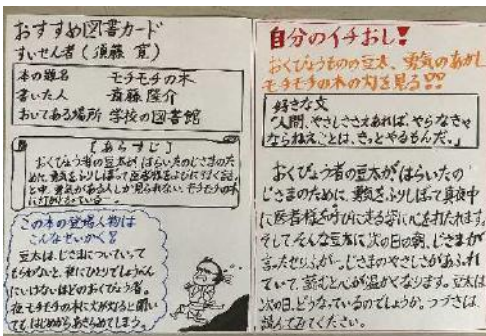 おすすめ図書カード
すいせん者(須藤 寛)
本の題名 モチモチの木
書いた人 斎藤隆介
おいてある場所 学校の図書館
【あらすじ】
おくびょう者の豆太が、はらいたのじさまのた
めに、勇気をふりしぼって医者様をよびに行く
と中、勇気がある人しか見られない、モチモチの木
に灯がともっている…
この本の登場人物は
こんなせいかく!
豆太は、じさまについていって
もらわないと、夜にひとりでしょうべん
にいけないほどのおくびょう者。
夜、モチモチの木に火が灯ると聞い
ても、はじめからあきらめてしまう。
自分のイチおし!
おくびょうものの豆太、勇気のあかし
モチモチの木の灯を見る!!
好きな文
「人間、やさしささえあれば、やらなきゃ
ならねえことは、きっとやるもんだ。」
おくびょう者の豆太がはらいたの
じさまのために、勇気をふりしぼって真夜中
に医者様を呼びに走る姿に心を打たれます。
そして、そんな豆太に次の日の朝、じさまが
言ったせりふが…。じさまのやさしさがあふれ
ていて、読むと心が温かくなります。豆太は
次の日、どうなっているのでしょうか。つづきは、
読んでみてください。